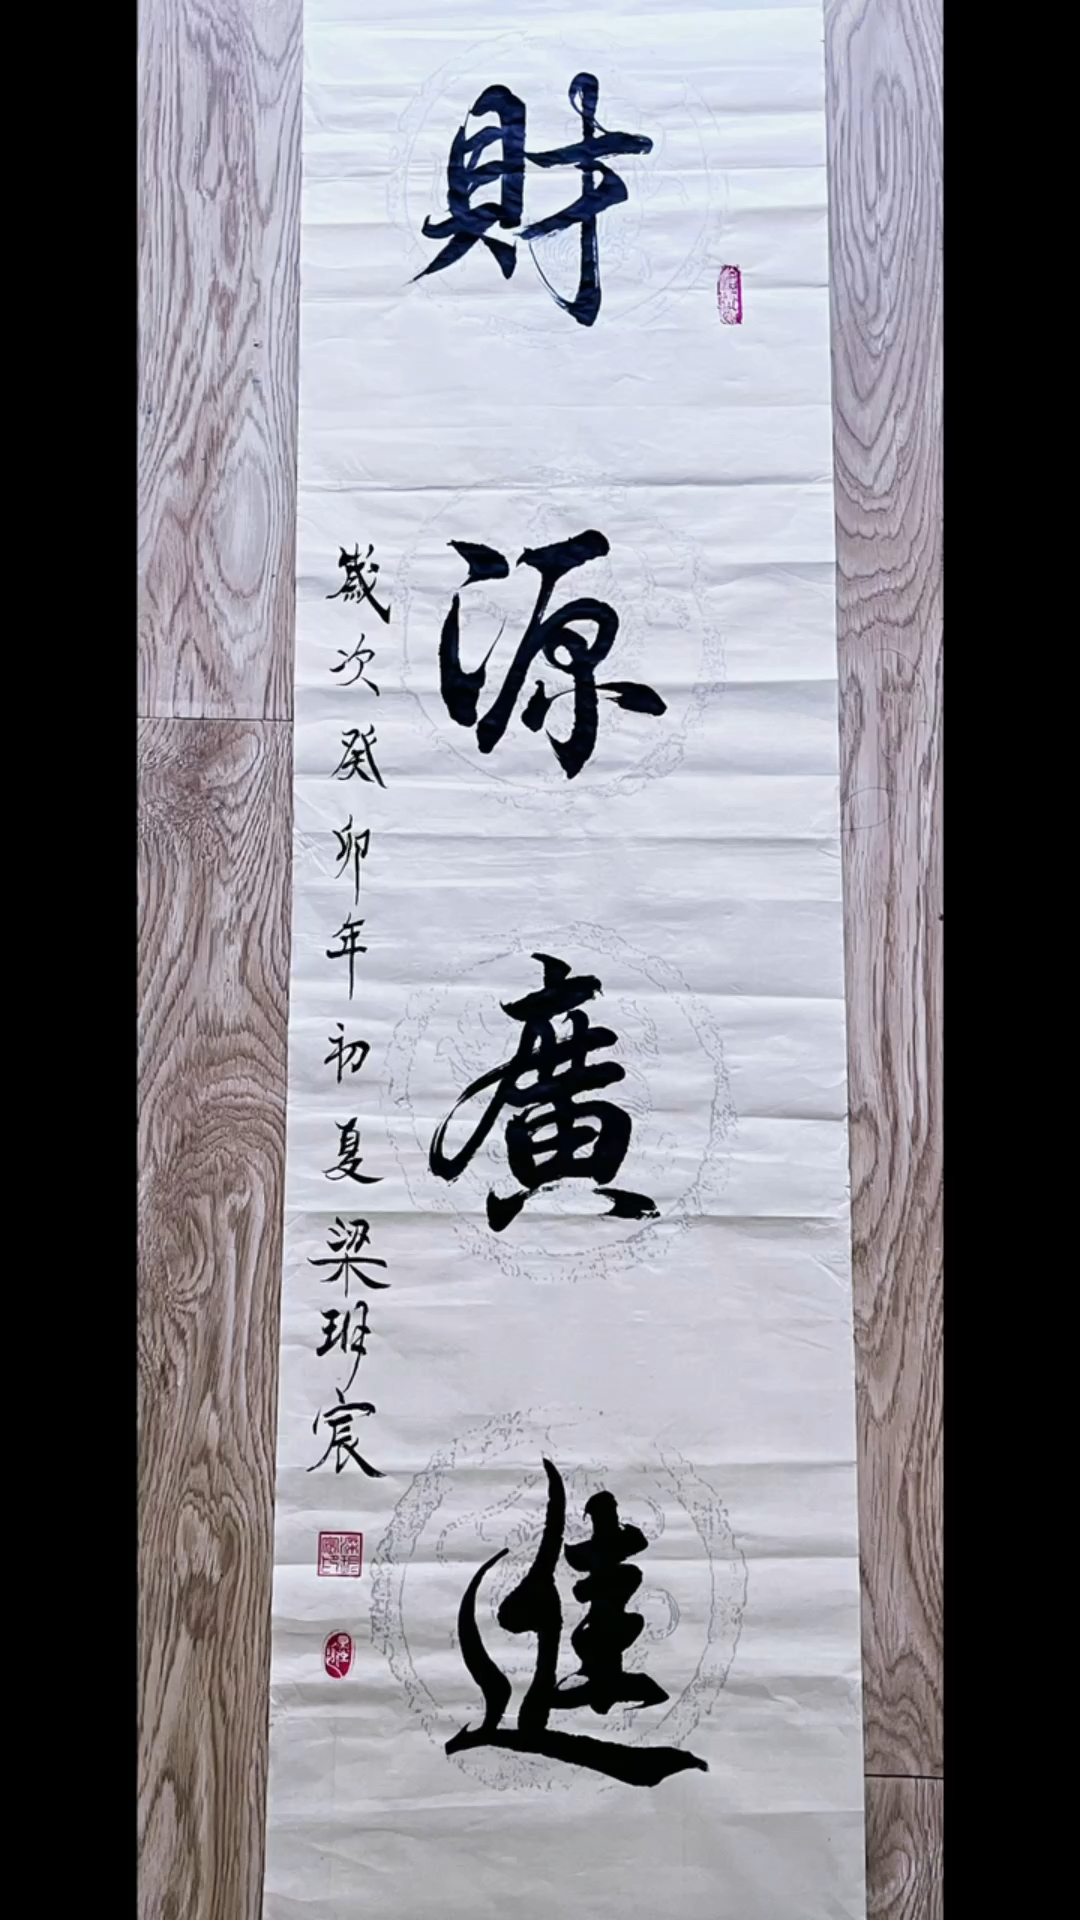 財源廣進
歲次癸卯年初夏梁珊宸